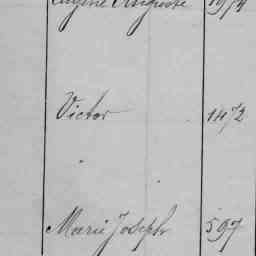 Eugène Auguste 1974
Victor 1472
Marie Joseph 597